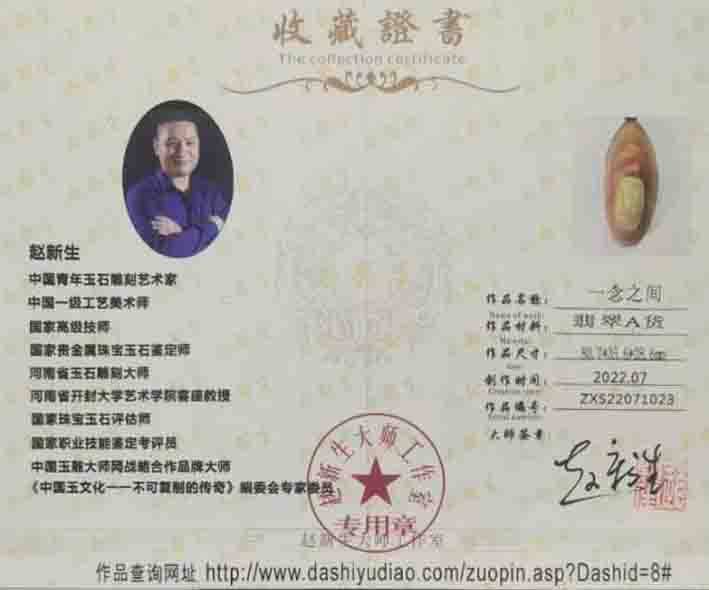 收藏證書
The collection certificate
赵新生
中国青年玉石雕刻艺术家
中国一级工艺美术师
国家高级技师
国家贵金属珠宝玉石鉴定师
河南省玉石雕刻大师
河南省开封大学艺术学院客座教授
国家珠宝玉石评估师
国家职业技能鉴定考评员
中国玉雕大师网战略合作品牌大师
《中国玉文化一一不可复制的传奇》编委会专家委员
作品名称： 一念之间
Name of work:
作品材料： 翡翠A货
Material:
作品尺寸：
创作时间： 2022.07
作品编号： ZXS22071023
大师签章： 赵新生
赵新生大师工作室
专用章
赵新生大师工作室
作品查询网址 http://www.dashiyudiao.com/zuopin.asp?Dashid=8#